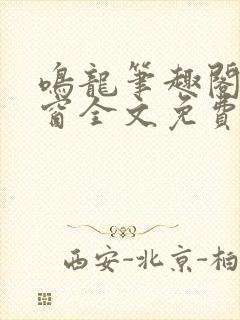 鳴龍筆趣閣
窗全文免費
西安-北京-柏